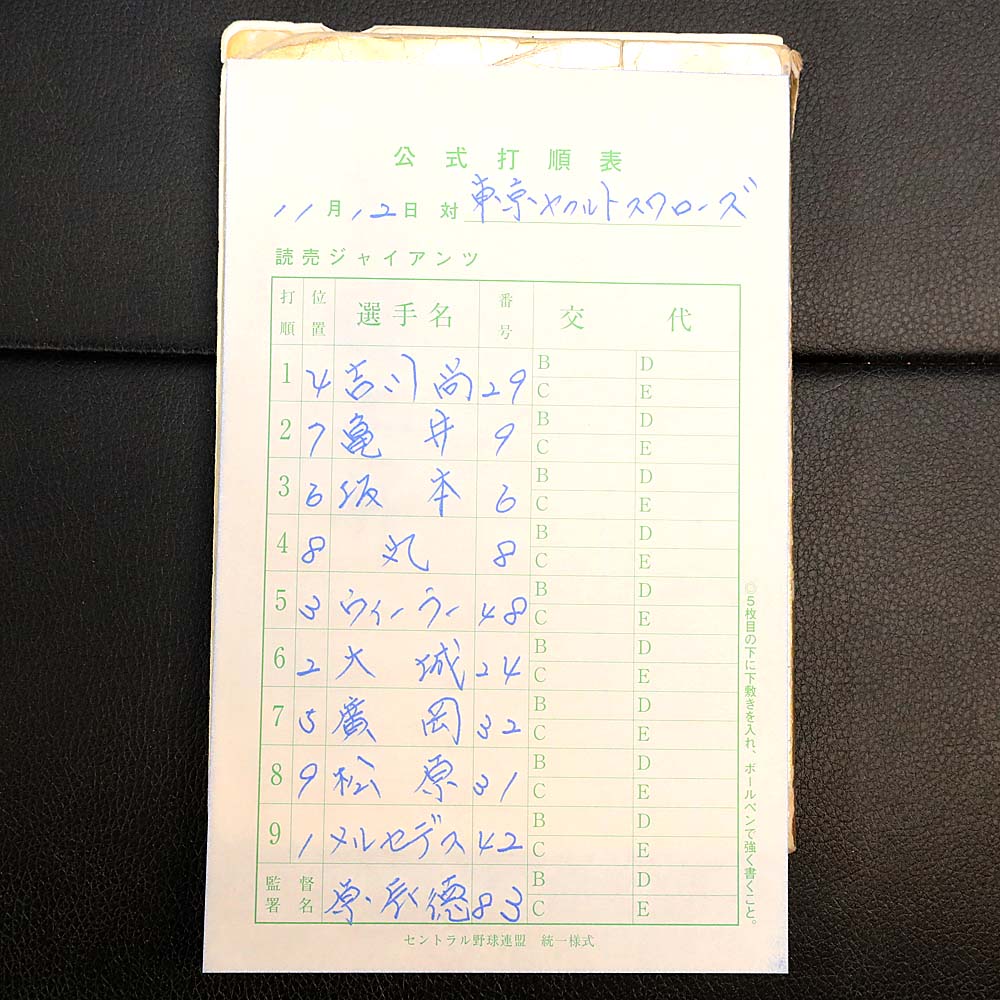 公式打順表
11月12日 対 東京ヤクルトスワローズ
読売ジャイアンツ
打順 位置 選手名 番号 交代
1 4 吉川尚 29 B D
C E
2 7 亀井 9 B D
C E
3 6 坂本 6 B D
C E
4 8 丸 8 B D
C E
5 3 ウィーラー 48 B D
C E
6 2 大城 24 B D
C E
7 5 廣岡 32 B D
C E
8 9 松原 31 B D
C E
9 1 メルセデス 42 B D
C E
監督署名 原辰徳 83 B D
C E
セントラル野球連盟 統一様式
◎5枚目の下に下敷きを入れ、ボールペンで強く書くこと。